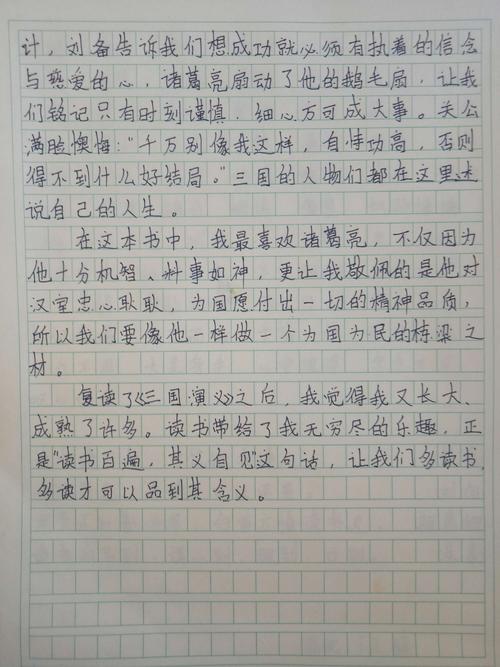 计，刘备告诉我们想成功就必须有执着的信念
与慈爱的心，诸葛亮扇动了他的鹅毛扇，让我
们铭记只有时刻谨慎，细心方可成大事。关公
满脸懊悔：“千万别像我这样，自恃功高，否则
得不到什么好结局。”三国的人物们都在这里述
说自己的人生。
在这本书中，我最喜欢诸葛亮，不仅因为
他十分机智、料事如神，更让我敬佩的是他对
汉室忠心耿耿，为国愿付出一切的精神品质，
所以我们要像他一样做一个为国为民的栋梁之
材。
复读了《三国演义》之后，我觉得我又长大、
成熟了许多。读书带给了我无穷尽的乐趣，正
是“读书百遍，其义自见”这句话，让我们多读书，
多读才可以品到其含义。